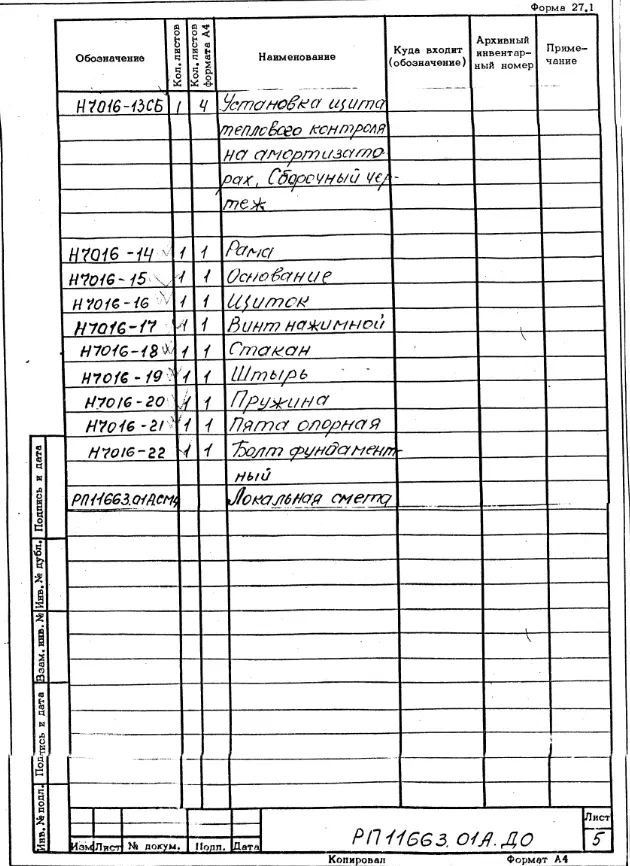 Форма 27.1
Обозначение Кол. листов Кол. листов формата А4 Наименование Куда входит (обозначение) Архивный инвентарный номер Примечание
Н7016-13СБ 1 4 Установка щита
теплового контроля
на амортизато-
рах. Сборочный чер-
теж
Н7016-14 1 1 Рама
Н7016-15 1 1 Основание
Н7016-16 1 1 Щиток
Н7016-17 1 1 Винт нажимной
Н7016-18 1 1 Стакан
Н7016-19 1 1 Штырь
Н7016-20 1 1 Пружина
Н7016-21 1 1 Пята опорная
Н7016-22 1 1 Болт фундамент-
ный
РП11663.01А.СМ4 Локальная смета
Подпись и дата
Инв. № дубл.
Взам. инв. №
Подпись и дата
Инв. № подл.
Изм Лист № докум. Подп. Дата
РП11663.01А.ДО
Лист
5
Копировал Формат А4